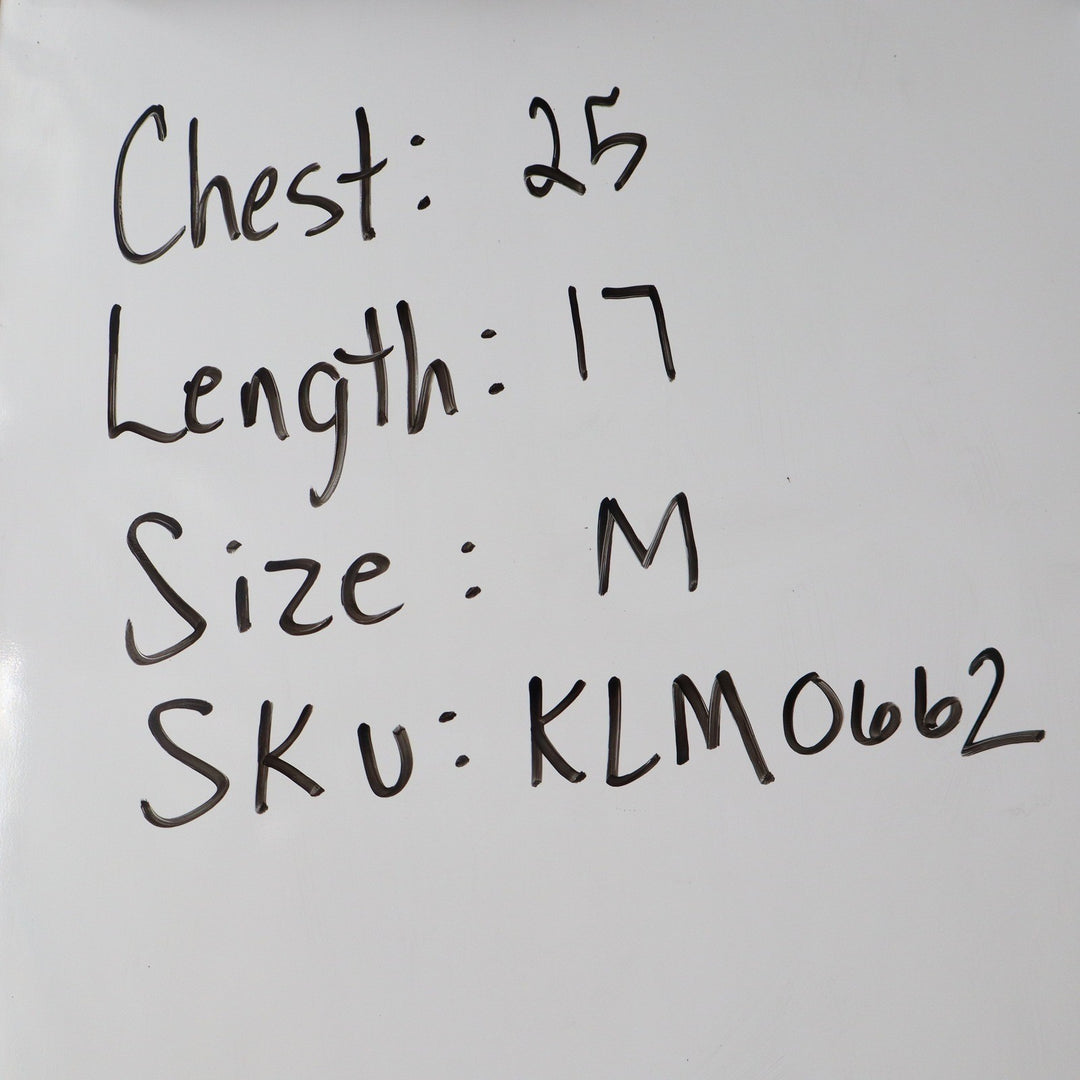 Chest: 25
Length: 17
Size: M
SKU: KLM0662